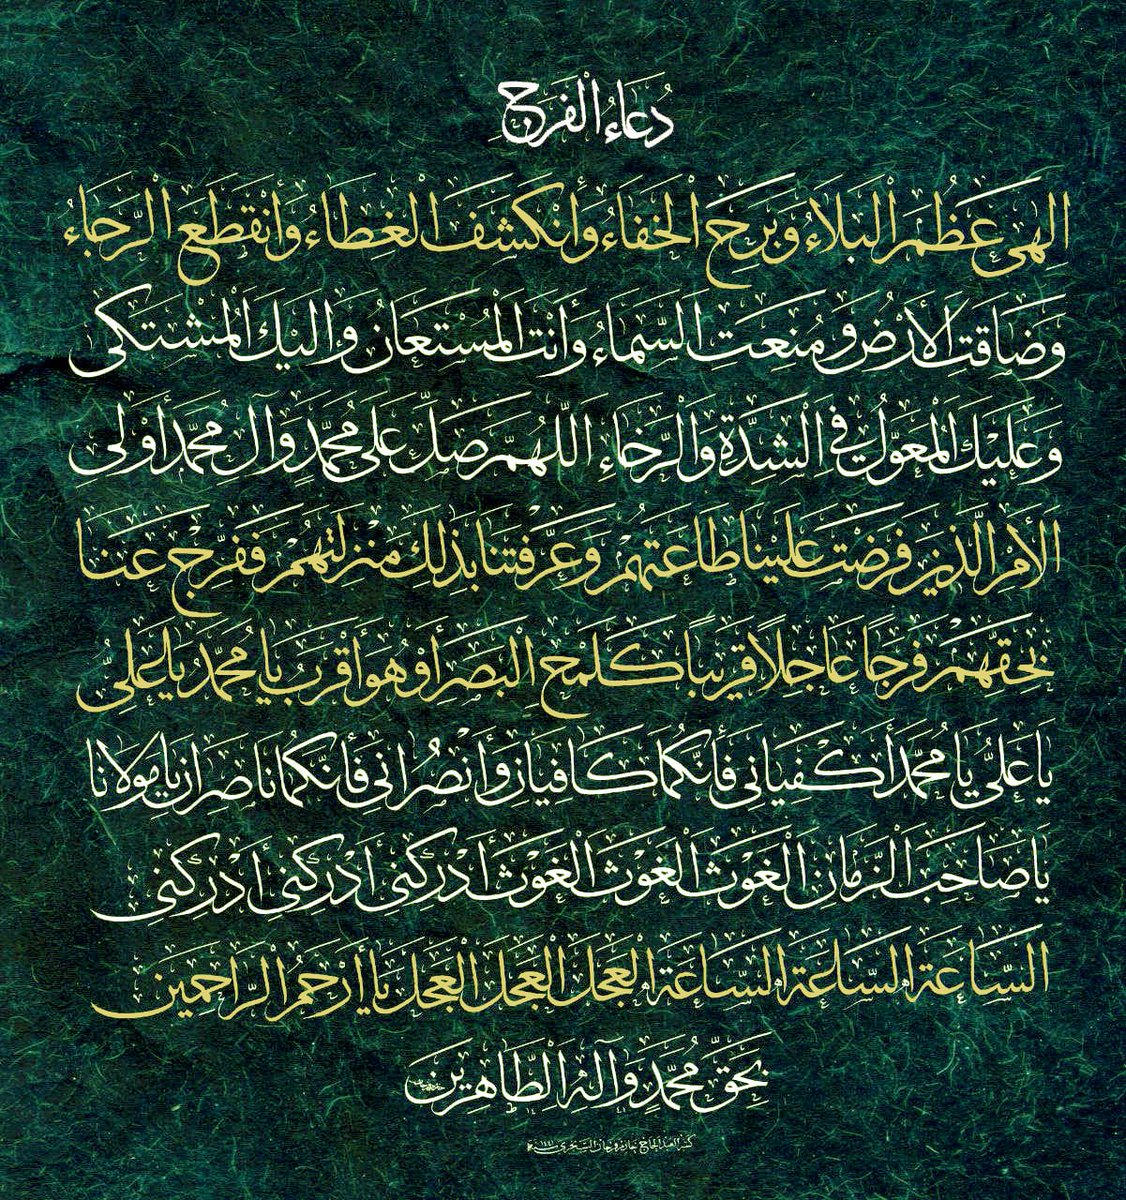 دُعَاءُ الْفَرَجِ
إلهِي عَظُمَ الْبَلَاءُ وَبَرِحَ الْخَفَاءُ وَانْكَشَفَ الْغِطَاءُ وَانْقَطَعَ الرَّجَاءُ
وَضَاقَتِ الْأَرْضُ وَمُنِعَتِ السَّمَاءُ وَأَنْتَ الْمُسْتَعَانُ وَإِلَيْكَ الْمُشْتَكَى
وَعَلَيْكَ الْمُعَوَّلُ فِي الشِّدَّةِ وَالرَّخَاءِ اللَّهُمَّ صَلِّ عَلَى مُحَمَّدٍ وَآلِ مُحَمَّدٍ أُولِي
الْأَمْرِ الَّذِينَ فَرَضْتَ عَلَيْنَا طَاعَتَهُمْ وَعَرَّفْتَنَا بِذَلِكَ مَنْزِلَتَهُمْ فَفَرِّجْ عَنَّا
بِحَقِّهِمْ فَرَجًا عَاجِلًا قَرِيبًا كَلَمْحِ الْبَصَرِ أَوْ هُوَ أَقْرَبُ يَا مُحَمَّدُ يَا عَلِيُّ
يَا عَلِيُّ يَا مُحَمَّدُ أكْفِيَانِي فَأنَّكُمَا كَافِيَانِ وَأنْصُرَانِي فَأنَّكُمَا نَاصِرَانِ يَا مَوْلَانَا
يَا صَاحِبَ الزَّمَانِ الْغَوْثَ الْغَوْثَ الْغَوْثَ أَدْرِكْنِي أَدْرِكْنِي أَدْرِكْنِي
السَّاعَةَ السَّاعَةَ السَّاعَةَ الْعَجَلَ الْعَجَلَ الْعَجَلَ يَا أَرْحَمَ الرَّاحِمِينَ
بِحَقِّ مُحَمَّدٍ وَآلِهِ الطَّاهِرِينَ